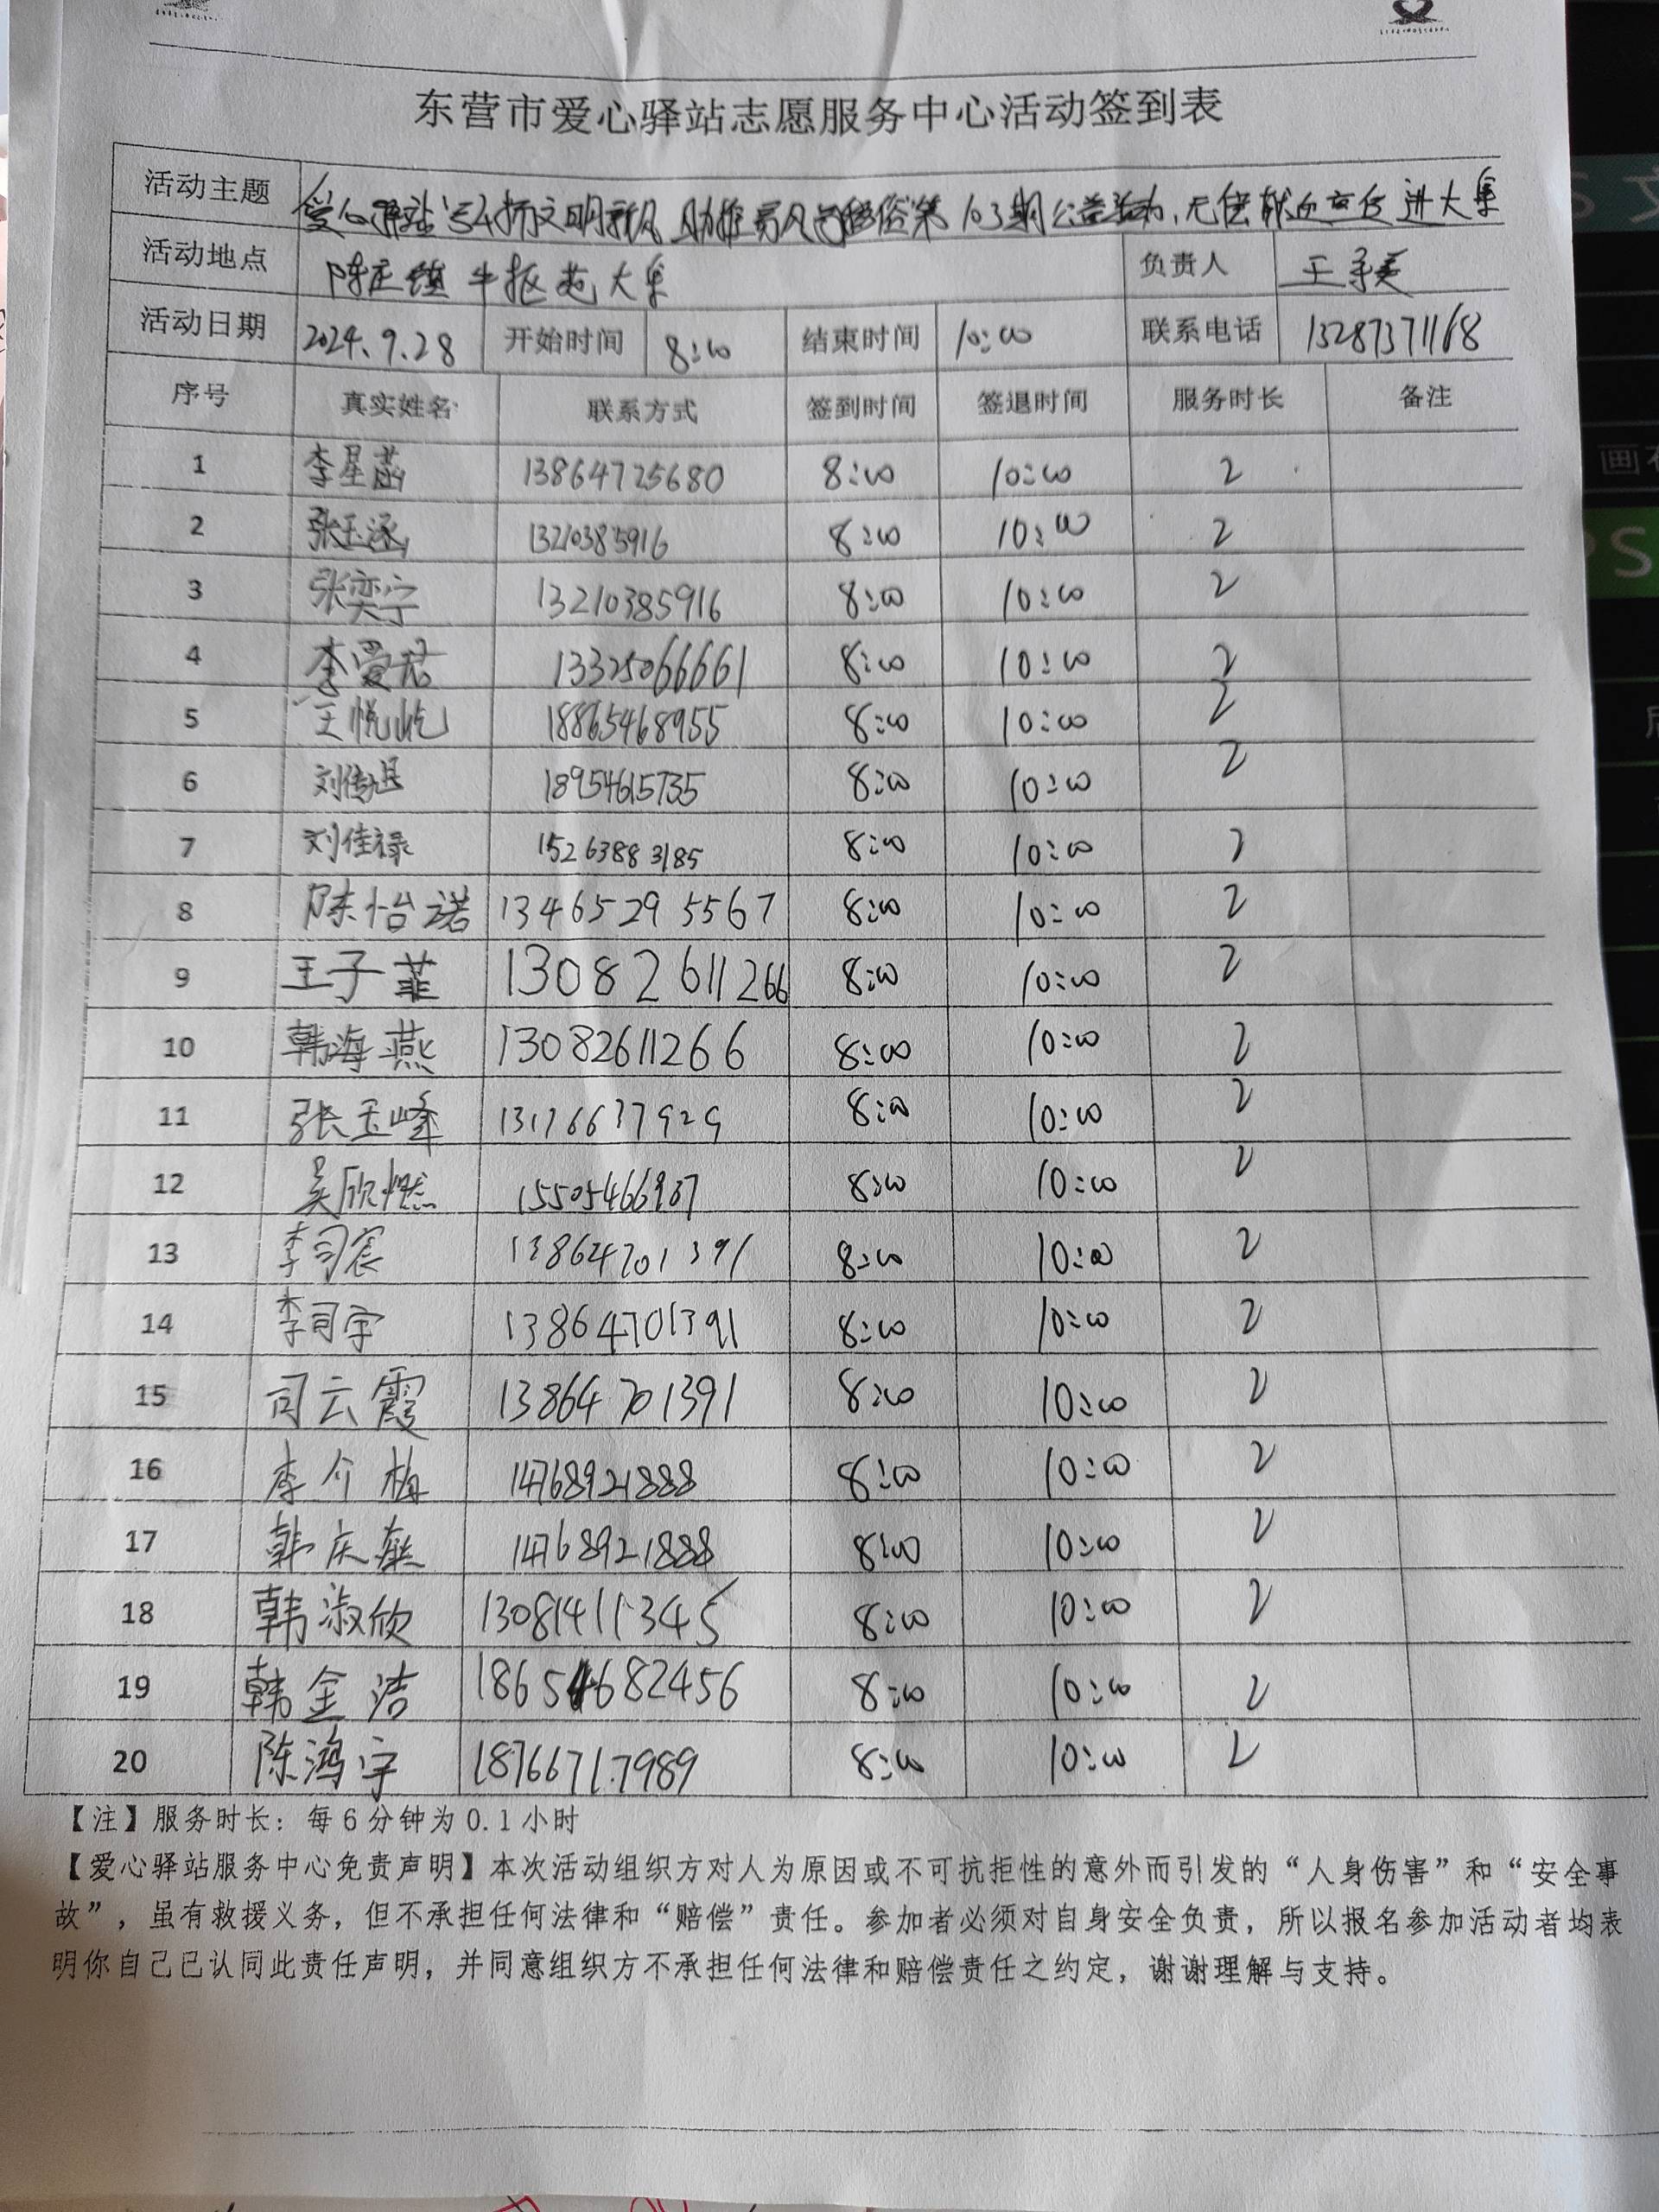 东营市爱心驿站志愿服务中心活动签到表
活动主题 爱心驿站 弘扬文明新风 助推易风与移俗第103期公益活动、无偿献血宣传进大集
活动地点 陈庄镇 大集 负责人 王
活动日期 2024.9.28 开始时间 8:00 结束时间 10:00 联系电话 13287371168
序号 真实姓名 联系方式 签到时间 签退时间 服务时长 备注
1 李星菡 13864725680 8:00 10:00 2
2 张玉涵 13210385916 8:00 10:00 2
3 张奕宁 13210385916 8:00 10:00 2
4 李爱君 13325066661 8:00 10:00 2
5 王悦屹 18865468955 8:00 10:00 2
6 刘 18954615735 8:00 10:00 2
7 刘佳禄 15263883185 8:00 10:00 2
8 陈怡诺 13465295567 8:00 10:00 2
9 王子菲 13082611266 8:00 10:00 2
10 韩海燕 13082611266 8:00 10:00 2
11 张玉峰 13176637929 8:00 10:00 2
12 吴欣燃 15505466987 8:00 10:00 2
13 李司宸 13864701391 8:00 10:00 2
14 李司宇 13864701391 8:00 10:00 2
15 司云霞 13864701391 8:00 10:00 2
16 李介梅 14768921888 8:00 10:00 2
17 韩庆燕 14768921888 8:00 10:00 2
18 韩淑欣 13081411345 8:00 10:00 2
19 韩金洁 18654682456 8:00 10:00 2
20 陈鸿宇 18766717989 8:00 10:00 2
【注】服务时长：每6分钟为0.1小时
【爱心驿站服务中心免责声明】本次活动组织方对人为原因或不可抗拒性的意外而引发的“人身伤害”和“安全事
故”，虽有救援义务，但不承担任何法律和“赔偿”责任。参加者必须对自身安全负责，所以报名参加活动者均表
明你自己已认同此责任声明，并同意组织方不承担任何法律和赔偿责任之约定，谢谢理解与支持。